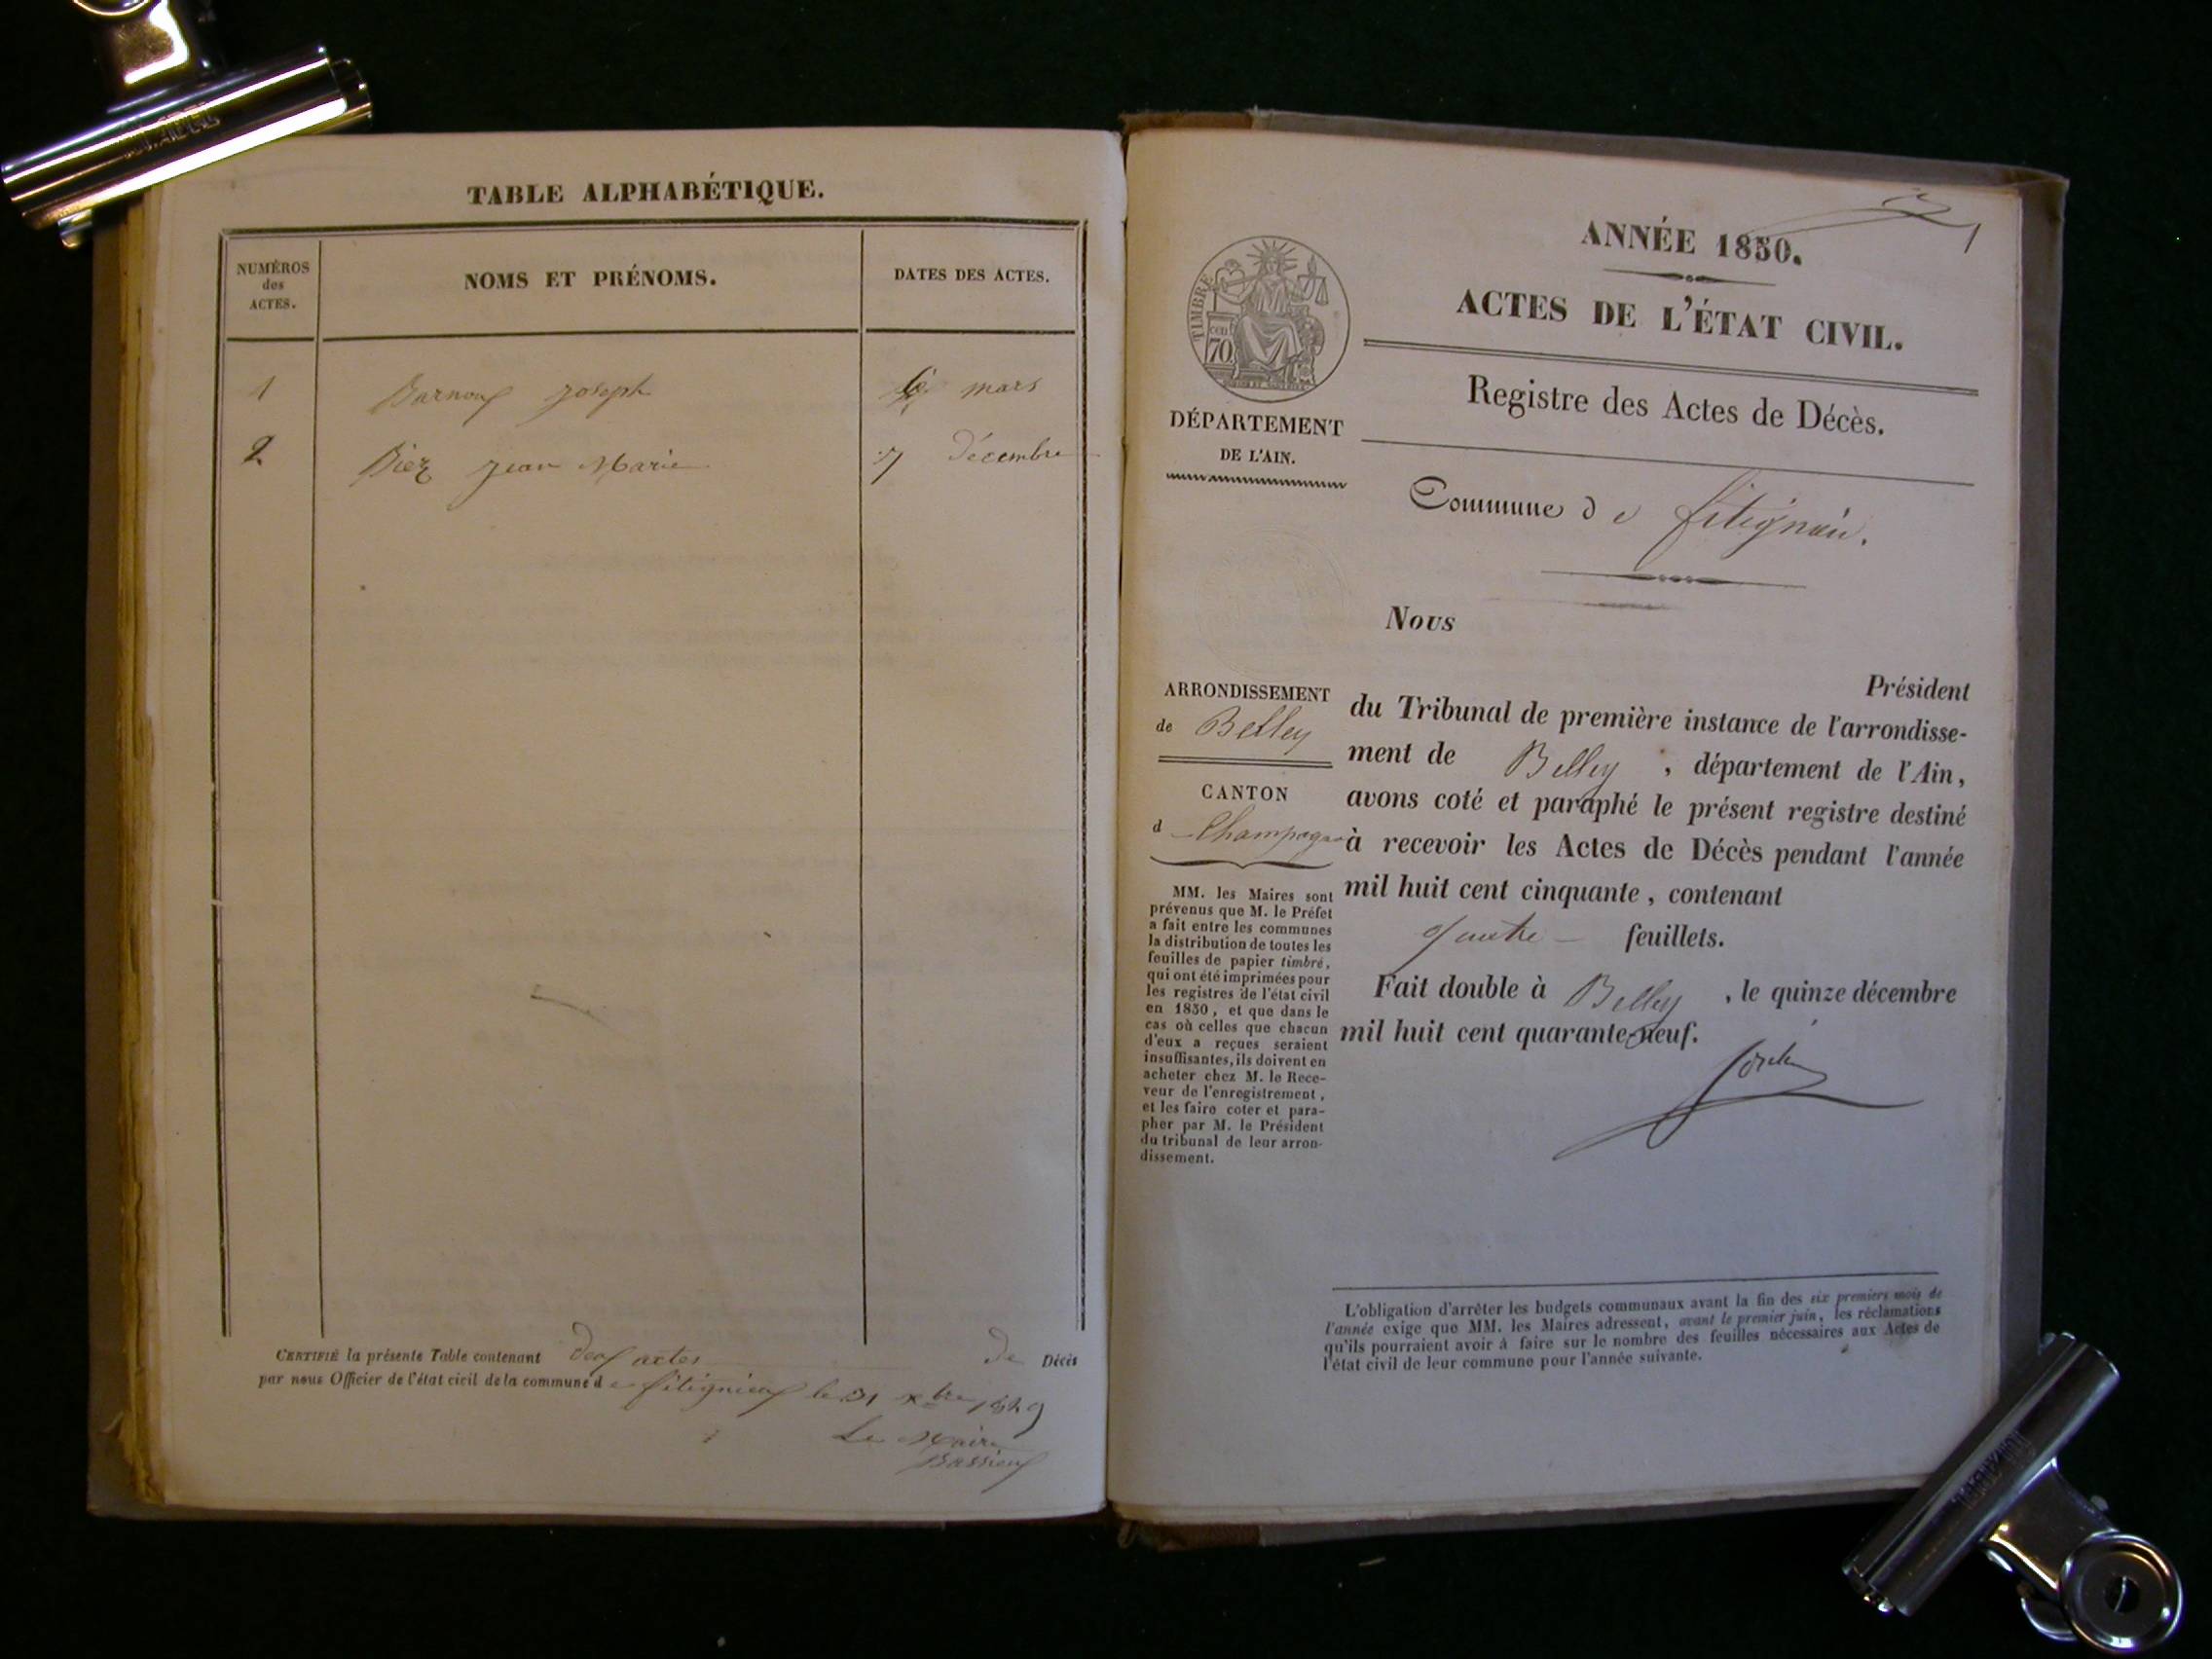 TABLE ALPHABÉTIQUE.
NUMÉROS
des
ACTES.
NOMS ET PRÉNOMS.
DATES DES ACTES.
1 Barnoux joseph mars
2 Biez jean Marie 7 Décembre
CERTIFIÉ la présente Table contenant deux actes de Décès
par nous Officier de l'état civil de la commune de fitignieux le 31 xbre 1849
Le Maire
Bassieux
1
ANNÉE 1850.
ACTES DE L'ÉTAT CIVIL.
Registre des Actes de Décès.
TIMBRE
cen
70
DÉPARTEMENT
DE L'AIN.
Commune de fitignieu.
Nous
Président
du Tribunal de première instance de l'arrondisse-
ment de Belley , département de l'Ain,
avons coté et paraphé le présent registre destiné
à recevoir les Actes de Décès pendant l'année
mil huit cent cinquante , contenant
quatre feuillets.
Fait double à Belley , le quinze décembre
mil huit cent quarante-neuf.
ARRONDISSEMENT
de Belley
CANTON
d Champagne
MM. les Maires sont
prévenus que M. le Préfet
a fait entre les communes
la distribution de toutes les
feuilles de papier timbré,
qui ont été imprimées pour
les registres de l'état civil
en 1850, et que dans le
cas où celles que chacun
d'eux a reçues seraient
insuffisantes, ils doivent en
acheter chez M. le Rece-
veur de l'enregistrement,
et les faire coter et para-
pher par M. le Président
du tribunal de leur arron-
dissement.
L'obligation d'arrêter les budgets communaux avant la fin des six premiers mois de
l'année exige que MM. les Maires adressent, avant le premier juin, les réclamations
qu'ils pourraient avoir à faire sur le nombre des feuilles nécessaires aux Actes de
l'état civil de leur commune pour l'année suivante.